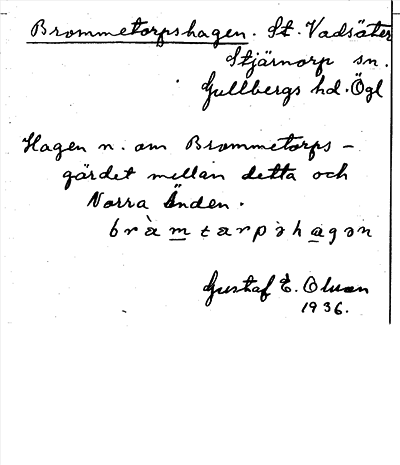 Brommetorpshagen. St. Vadsäter
Stjärnorp sn.
Gullbergs hd. Ögl
Hagen n. om Brommetorps-
gärdet mellan detta och
Norra Änden.
bràmtarpshagən
Gustaf E. Olsson
1936.